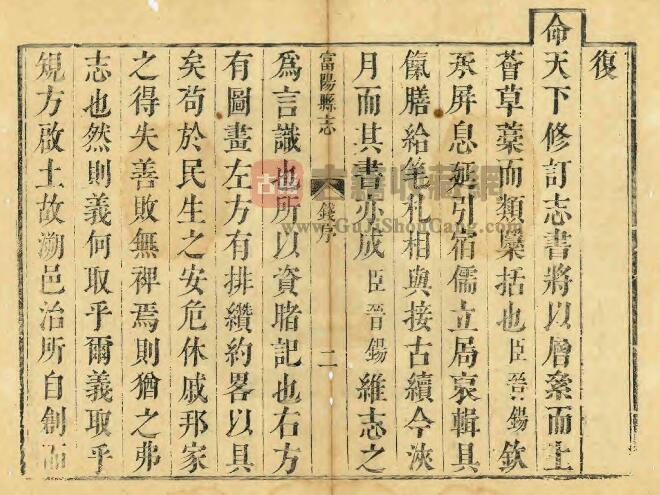 復
命天下修訂志書將以層絫而上
薈草藁而類櫽括也臣晉錫欽
承屏息延引宿儒立局裒輯具
餼膳給筆札相與接古續今浹
月而其書亦成臣晉錫維志之
富陽縣志 錢序 二
為言識也所以資睹記也右方
有圖畫左方有排纘約畧以具
矣苟於民生之安危休戚邦家
之得失善敗無裨焉則猶之弗
志也然則義何取乎爾義取乎
規方啟土故溯邑治所自創而
www.GuJiShouCang.com